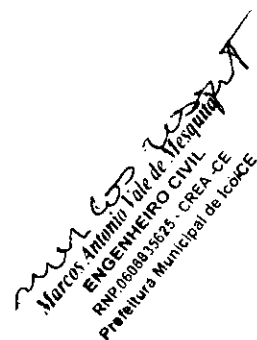 Marcos Antonio Vale de Mesquita
ENGENHEIRO CIVIL
RNP.0608835625 - CREA-CE
Prefeitura Municipal de Icó/CE